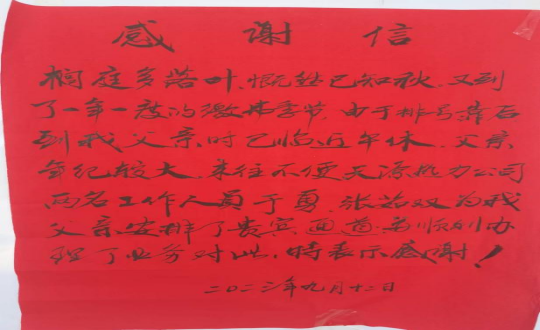 感谢信
桐庭多落叶,慨然已知秋,又到
了一年一度的缴费季节,由于排号靠后
到我父亲时已临近午休,父亲
年纪较大,来往不便天源热力公司
两名工作人员于勇、张茹双为我
父亲安排了贵宾通道,并顺利办
理了业务对此,特表示感谢!
二〇二三年九月十二日